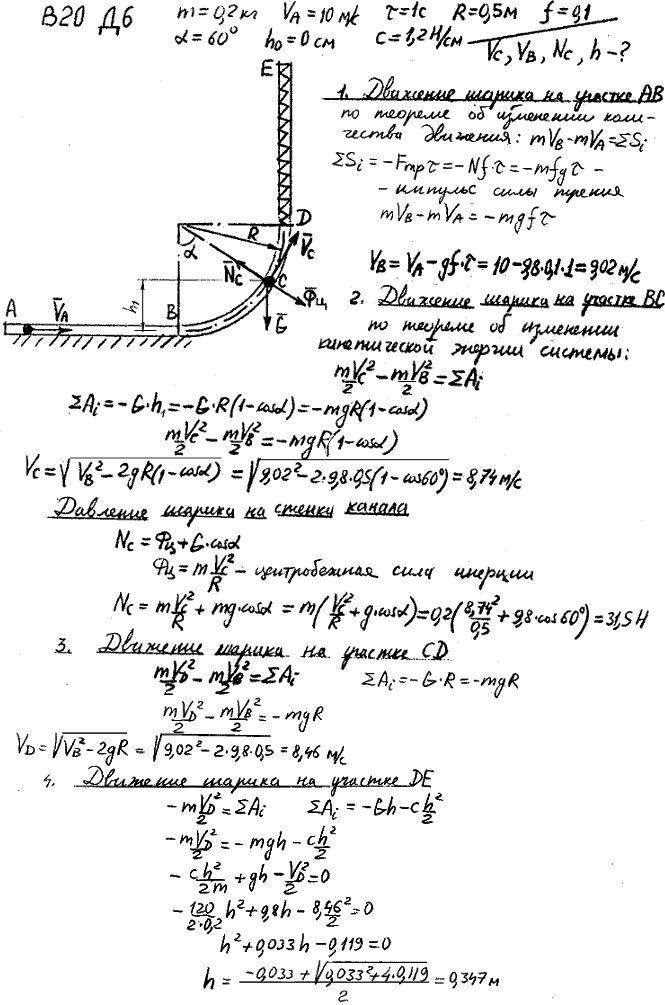 В20 Д6 m=0,2 кг V_A=10 м/с τ=1с R=0,5м f=0,1
α=60° h₀=0 см c=1,2 Н/см
V_C, V_B, N_C, h-?
E
1. Движение шарика на участке AB
по теореме об изменении коли-
чества движения: mV_B-mV_A=ΣS_i
ΣS_i=-F_тр τ=-Nf·τ=-mfgτ -
- импульс силы трения
mV_B-mV_A=-mgfτ
D
R
V̄_C
α
N̄_C
C
Φ̄_ц
h₁
Ḡ
A
V̄_A
B
V_B=V_A-gf·τ=10-9,8·0,1·1=9,02 м/с
2. Движение шарика на участке BC
по теореме об изменении
кинетической энергии системы:
mV_C²/2-mV_B²/2=ΣA_i
ΣA_i=-G·h₁=-G·R(1-cosα)=-mgR(1-cosα)
mV_C²/2-mV_B²/2=-mgR(1-cosα)
V_C=√(V_B²-2gR(1-cosα))=√(9,02²-2·9,8·0,5(1-cos60°))=8,74 м/с
Давление шарика на стенки канала
N_C=Φ_ц+G·cosα
Φ_ц=mV_C²/R - центробежная сила инерции
N_C=mV_C²/R+mg·cosα=m(V_C²/R+g·cosα)=0,2(8,74²/0,5+9,8·cos60°)=31,5Н
3. Движение шарика на участке CD
mV_D²/2-mV_B²/2=ΣA_i ΣA_i=-G·R=-mgR
mV_D²/2-mV_B²/2=-mgR
V_D=√(V_B²-2gR)=√(9,02²-2·9,8·0,5)=8,46 м/с
4. Движение шарика на участке DE
-mV_D²/2=ΣA_i ΣA_i=-Gh-ch²/2
-mV_D²/2=-mgh-ch²/2
-ch²/2m+gh-V_D²/2=0
-120/2·0,2 h²+9,8h-8,46²/2=0
h²+0,033h-0,119=0
h=(-0,033+√(0,033²+4·0,119))/2=0,347м